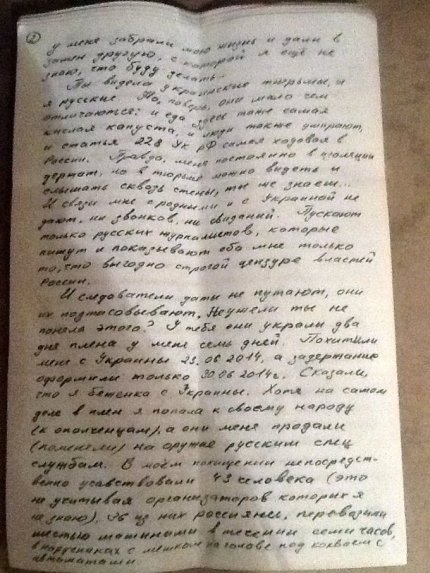 2
у меня забрали мою жизнь и дали в
замен другую, с которой я ещё не
знаю, что буду делать.
Ты видела украинские тюрьмы, а
я русские. Но, поверь, они мало чем
отличаются: и еда здесь такая самая
кислая капуста, и люди также умирают,
и статья 228 УК РФ самая ходовая в
России. Правда, меня постоянно в изоляции
держат, но в тюрьме можно видеть и
слышать сквозь стены, ты же знаешь...
И связи мне с родными и с Украиной не
дают, ни звонков, ни свиданий. Пускают
только русских журналистов, которые
пишут и показывают обо мне только
то, что выгодно строгой цензуре властей
России.
И следователи даты не путают, они
их подтасовывают. Неужели ты не
поняла этого? У тебя они украли два
дня плена у меня семь дней. Похитили
меня с Украины 23.06.2014, а задержание
оформили только 30.06.2014г. Сказали
что я беженка с Украины. Хотя на самом
деле в плен я попала к своему народу
(к ополченцам), а они меня продали
(поменяли) на оружие русским спец
службам. В моём похищении непосредст-
венно учавствовали 43 человека (это
не учитывая организаторов которых я
не знаю), 36 из них россияне, перевозили
шестью машинами в течении семи часов,
в наручниках с мешком на голове под конвоем с
автоматами